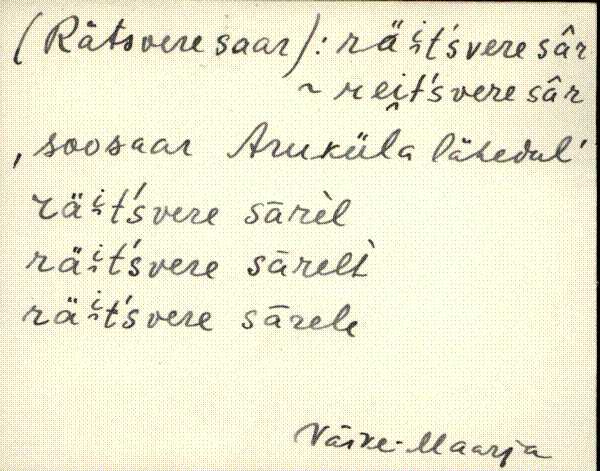 (Rätsvere saar): räi̯t́svere sâr
~ rei̯t́svere sâr
, soosaar Aruküla lähedal'
räi̯t́svere sārèl
räi̯t́svere sārelt̀
räi̯t́svere sārele
Väike-Maarja